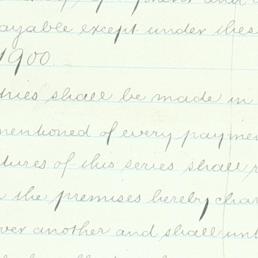 ayable except under thes
1900
tries shall be made in
mentioned of every paymen
tures of this series shall r
the premises hereby char
ver another and shall unt